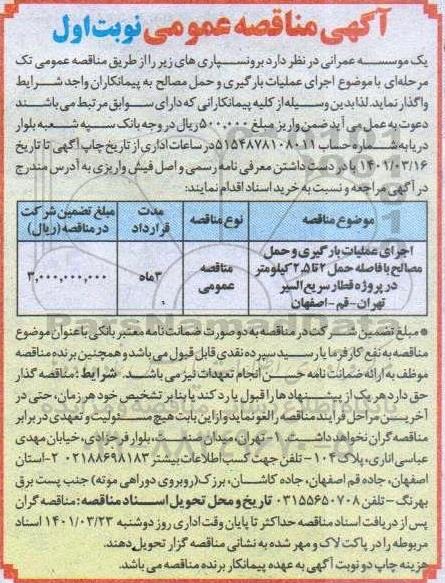 آگهی مناقصه عمومی نوبت اول
یک موسسه عمرانی در نظر دارد برونسپاری های زیر را از طریق مناقصه عمومی تک
مرحله‌ای با موضوع اجرای عملیات بارگیری و حمل مصالح به پیمانکاران واجد شرایط
واگذار نماید. لذا بدین وسیله از کلیه پیمانکارانی که دارای سوابق مرتبط می باشند
دعوت به عمل می آید ضمن واریز مبلغ ۵۰۰,۰۰۰ ریال در وجه بانک سپه شعبه بلوار
دریا به شماره حساب ۵۱۵۴۸۷۸۱۰۸۰۱۱ در ساعات اداری از تاریخ چاپ آگهی تا تاریخ
۱۴۰۱/۰۳/۱۶ با در دست داشتن معرفی نامه رسمی و اصل فیش واریزی به آدرس مندرج
در آگهی مراجعه و نسبت به خرید اسناد اقدام نمایند:
موضوع مناقصه
نوع مناقصه
مدت قرارداد
مبلغ تضمین شرکت در مناقصه (ریال)
اجرای عملیات بارگیری و حمل
مصالح با فاصله حمل ۲ تا ۲,۵ کیلومتر
در پروژه قطار سریع السیر
تهران-قم-اصفهان
مناقصه عمومی
۳ ماه
۳,۰۰۰,۰۰۰,۰۰۰
• مبلغ تضمین شرکت در مناقصه به دو صورت ضمانت نامه معتبر بانکی با عنوان موضوع
مناقصه به نفع کارفرما یا رسید سپرده نقدی قابل قبول می باشد و همچنین برنده مناقصه
موظف به ارائه ضمانت نامه حسن انجام تعهدات نیز می باشد. شرایط: مناقصه گذار
حق دارد هر یک از پیشنهادها را قبول یا رد کند یا بنابر تشخیص خود هر زمان، حتی در
آخرین مراحل فرآیند مناقصه را لغو نماید و از این بابت هیچ مسئولیت و تعهدی در برابر
مناقصه گران نخواهد داشت. ۱- تهران، میدان صنعت، بلوار فرحزادی، خیابان مهدی
عباسی اناری، پلاک ۱۰۴ - تلفن جهت کسب اطلاعات بیشتر ۰۲۱۸۸۶۹۸۱۸۳ ۲- استان
اصفهان، جاده قم اصفهان، جاده کاشان، برزک (روبروی دوراهی موته) جنب پست برق
بهرنگ - تلفن ۰۳۱۵۵۶۵۰۷۰۸ تاریخ و محل تحویل اسناد مناقصه: مناقصه گران
پس از دریافت اسناد مناقصه حداکثر تا پایان وقت اداری روز دوشنبه ۱۴۰۱/۰۳/۲۳ اسناد
مربوطه را در پاکت لاک و مهر شده به نشانی مناقصه گزار تحویل دهند.
هزینه چاپ دو نوبت آگهی به عهده پیمانکار برنده مناقصه می باشد.